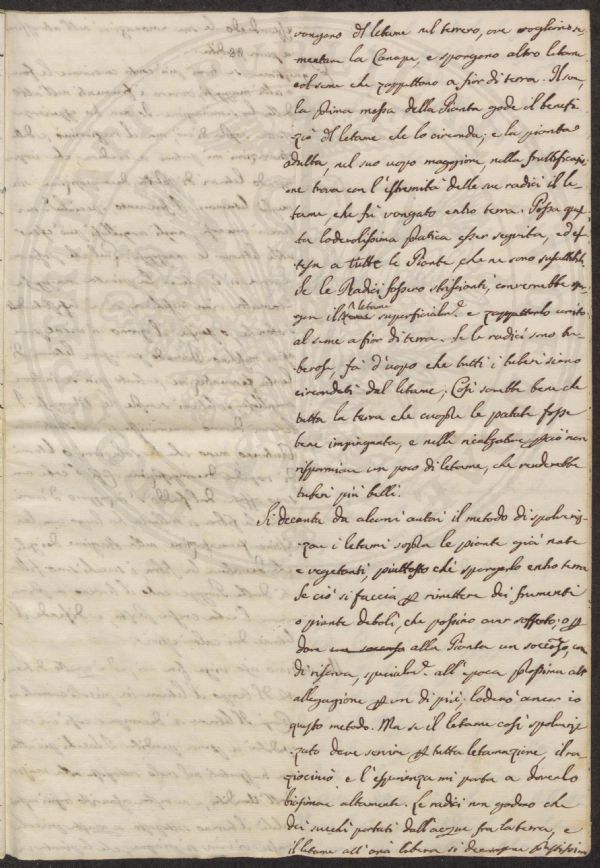 vongano di letame nel terreno, ove vogliono se
mentare la Canape, e spongono altro letame
col seme che zappettano a fior di terra. Il
la prima messa della Pianta gode il benefi
zio di letame che lo circonda; e la pianta
adulta, nel suo uopo maggiore, nella fruttificazi
one trova con l'estremità delle sue radici il le
tame, che fu vangato entro terra. Possa ques
ta lodevolissima pratica esser seguita, ed es
tesa a tutte le Piante, che ne sono suscettibili
Se le Radici fossero strisianti, converrebbe
il letame superficialm.e e zappettarlo unito
al seme a fior di terra. Se le radici sono tu-
berose, fà d'uopo che tutti i tuberi sieno
circondati dal letame; Così sarebbe bene che
tutta la terra che cuopre le patate fosse
bene impinguata, e nelle rincalzature non
risparmiare un poco di letame, che renderebbe
tuberi più belli.
Si decanta da alcuni autori il metodo di spolveriz-
zare i letami sopra le piante già nate
e vegetanti, piuttosto che spargerlo entro terra
Se ciò si faccia per rimettere dei frumenti
o piante deboli, che possino aver sofferto; o per
dare alla Pianta un soccorso,
di riserva, specialm.e all'epoca prossima all'
allegagione per un di più, loderò ancor io
questo metodo. Ma se il letame così spolveriz
zato deve servire per tutta letamazione il ra
ziocinio e l'esperienza mi porta a doverlo
biasimare altamente. Le radici non godono che
dei succhi portati dall'acque fra la terra, e
il letame all'aria libera si decompone prestissimo